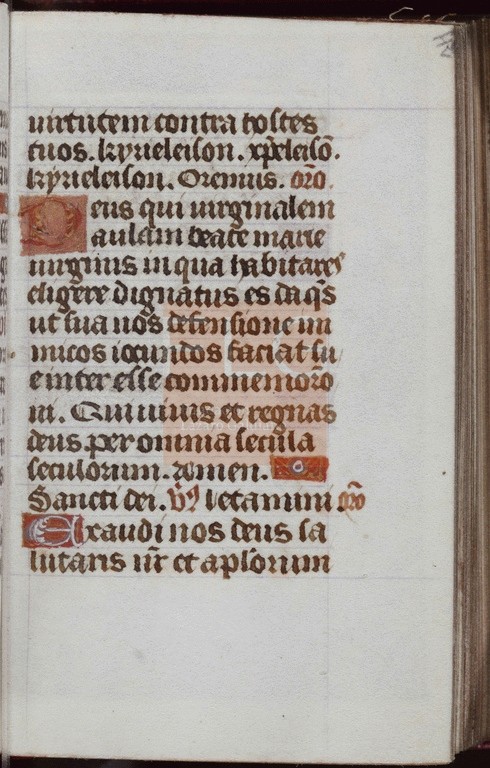 uirtutem contra hostes
tuos. kyrieleison. xp̄eleisō.
kyrieleison. Oremus. or̄o.
Deus qui uirginalem
aulam beate marie
uirginis in qua habitares
eligere dignatus es da qs̄
ut sua nos defensione mu
iocundos faciat su
e inter esse commemorōo
ni. Qui uiuis et regnas
deus per omnia secula
seculorum. amen.
Sancti dei. v̄s letamini or̄o
Exaudi nos deus sa
lutaris nr̄ et aplorum